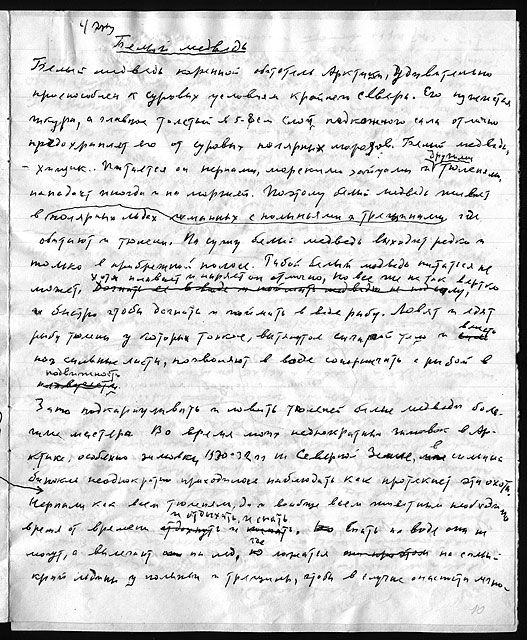 Белый медведь
Белый медведь коренной обитатель Арктики, удивительно
приспособлен к суровым условиям крайнего севера. Его пушистая
шкура, а главное толстый в 5-8 см слой подкожного сала отлично
предохраняет его от суровых полярных морозов. Белый медведь,
– хищник. Питается он нерпами, морскими зайцами и другими тюленями,
нападает иногда и на моржей. Поэтому белый медведь живет
в полярных льдах с полыньями и трещинами, где
обитают и тюлени. На сушу белый медведь выходит редко и
только в прибрежной полосе. Рыбой белый медведь питаться не
может, хотя плавает и ныряет он отлично, но все же не так вертко
и быстро чтобы догнать и поймать в воде рыбу. Ловят и едят
рыбу тюлени у которых тонкое, вытянутое тело и вместо
ног сильные ласты, позволяют в воде с рыбой в
подвижности
Зато подкарауливать и ловить тюленей белые медведи боль-
шие мастера. Во время моих неоднократных зимовок в Ар-
ктике, особенно зимовки 1930-32 гг на Северной Земле, в
бинокль неоднократно приходилось наблюдать как протекает эта охота.
Нерпам как всем тюленям, да и вообще всем животным необходимо
время от времени и отдыхать, и спать. Спать на воде они не
могут, а вылезают на лед, где ложатся на самый
край льдины у полыньи и трещины, чтобы в случае опасности мгно-
10